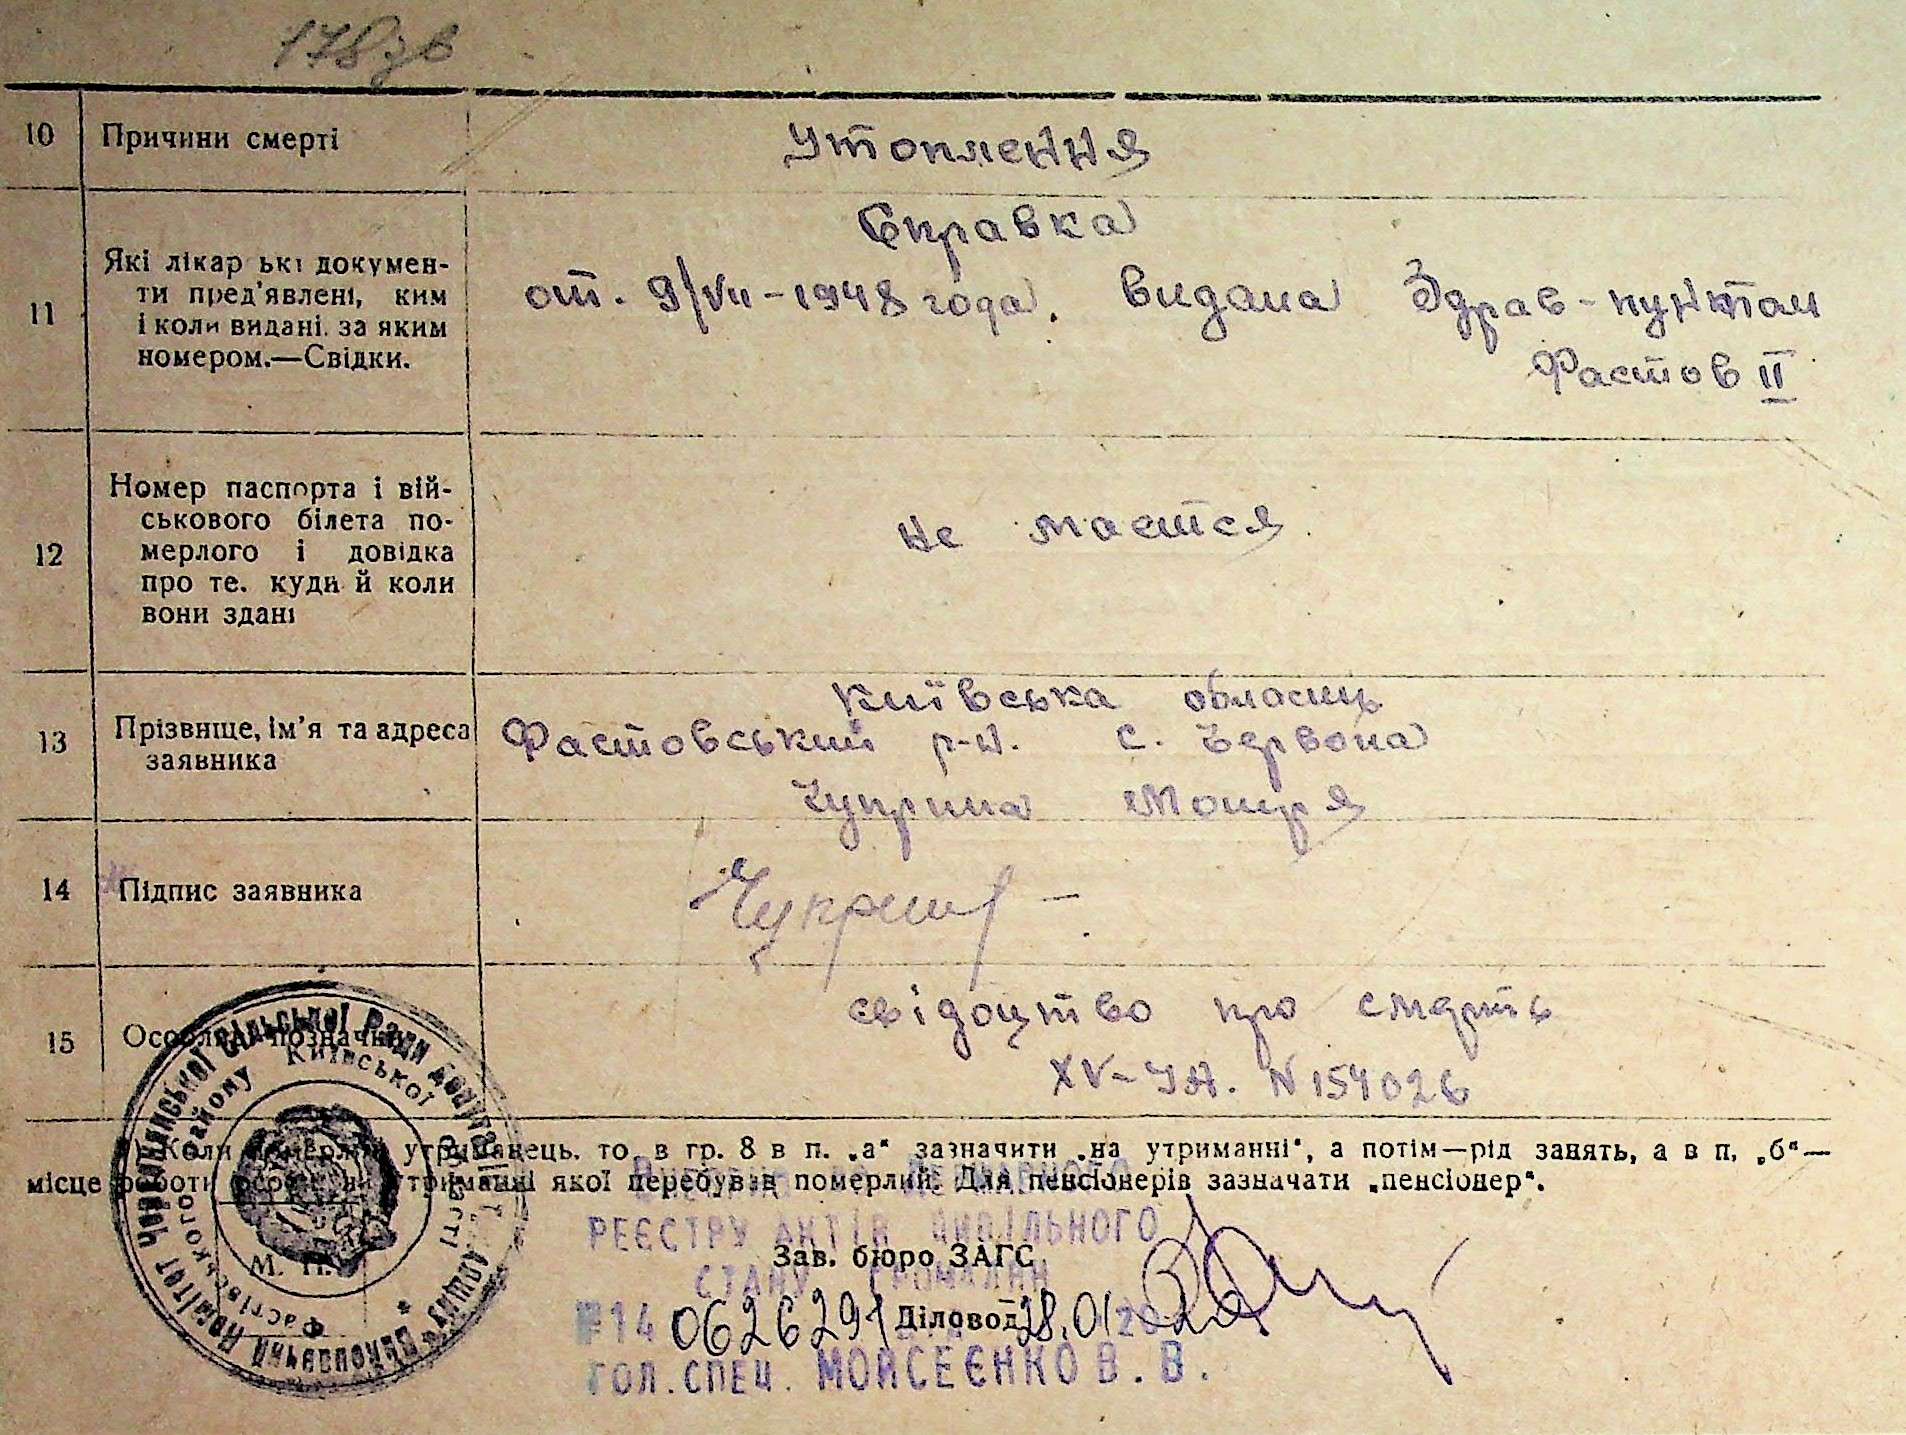 178зв
10 Причини смерті Утоплення
11 Які лікар ькі докумен-
ти пред'явлені, ким
і коли видані. за яким
номером.—Свідки.
Справка
от. 9/VII-1948 года. видана Здрав-пунктом
Фастов II
12 Номер паспорта і вій-
ськового білета по-
мерлого і довідка
про те. куди й коли
вони здані
не маєтся
13 Прізвище, ім'я та адреса
заявника
Київська область
Фастовський р-н. с. Червона
Чуприна Мотря
14 Підпис заявника
15 Особливі позначки
свідоцтво про смерть
XV-УА. N 154026
Коли померлий утриманець. то в гр. 8 в п. „а“ зазначити „на утриманні“, а потім—рід занять, а в п, „б“—
місце роботи особи, на утриманні якої перебував померлий. Для пенсіонерів зазначати „пенсіонер“.
Внесено до Державного
РЕЄСТРУ АКТІВ ЦИВІЛЬНОГО
Зав. бюро ЗАГС
СТАНУ ГРОМАДЯН
№14 0626291 Діловод 28.01.20
ГОЛ.СПЕЦ. МОЙСЕЄНКО В. В.
М. П.
Виконавчий Комітет Червонянської сільської Ради депутатів трудящих
Фастівського району Київської області